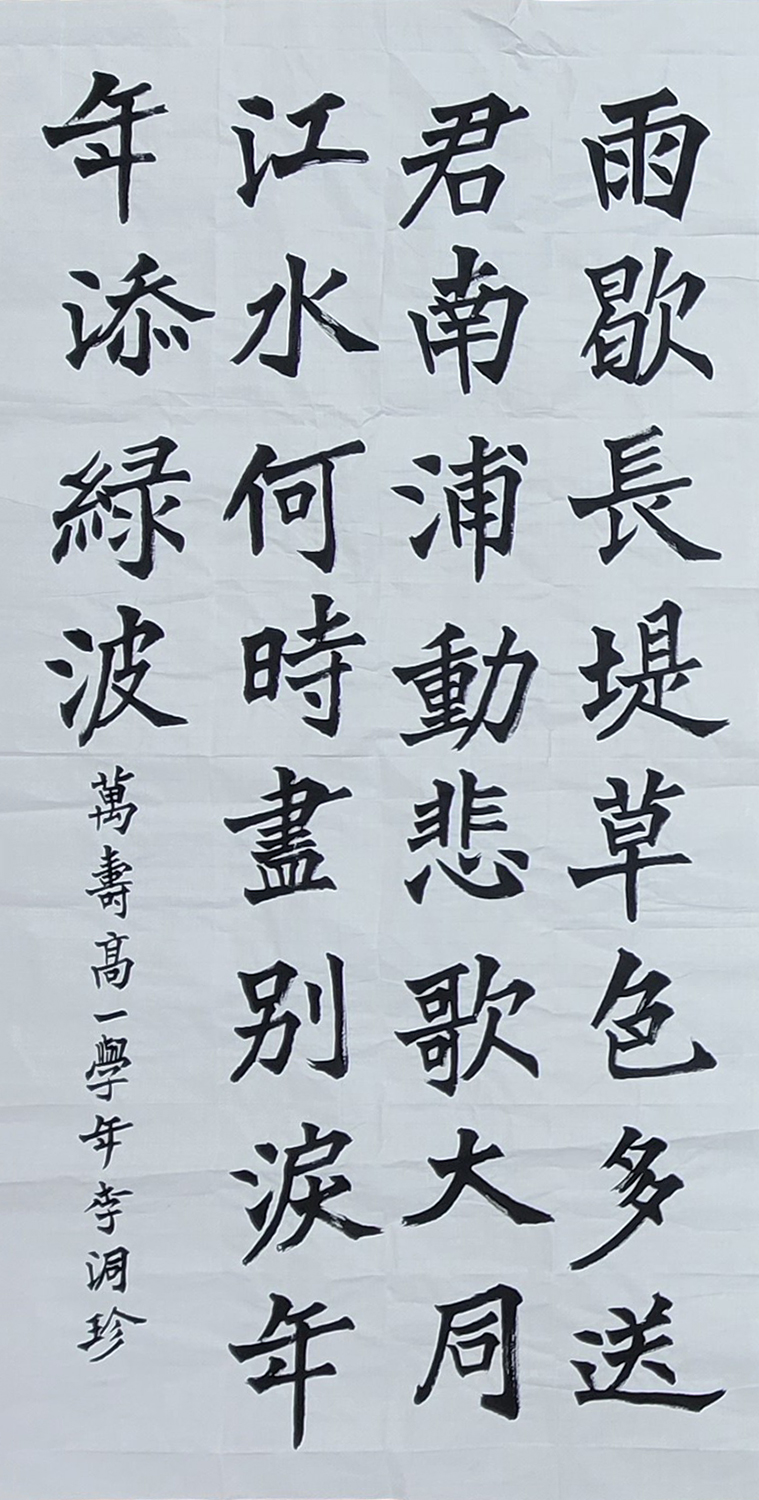 雨歇長堤草色多送
君南浦動悲歌大同
江水何時盡別淚年
年添綠波
萬壽高一學年李洞珍